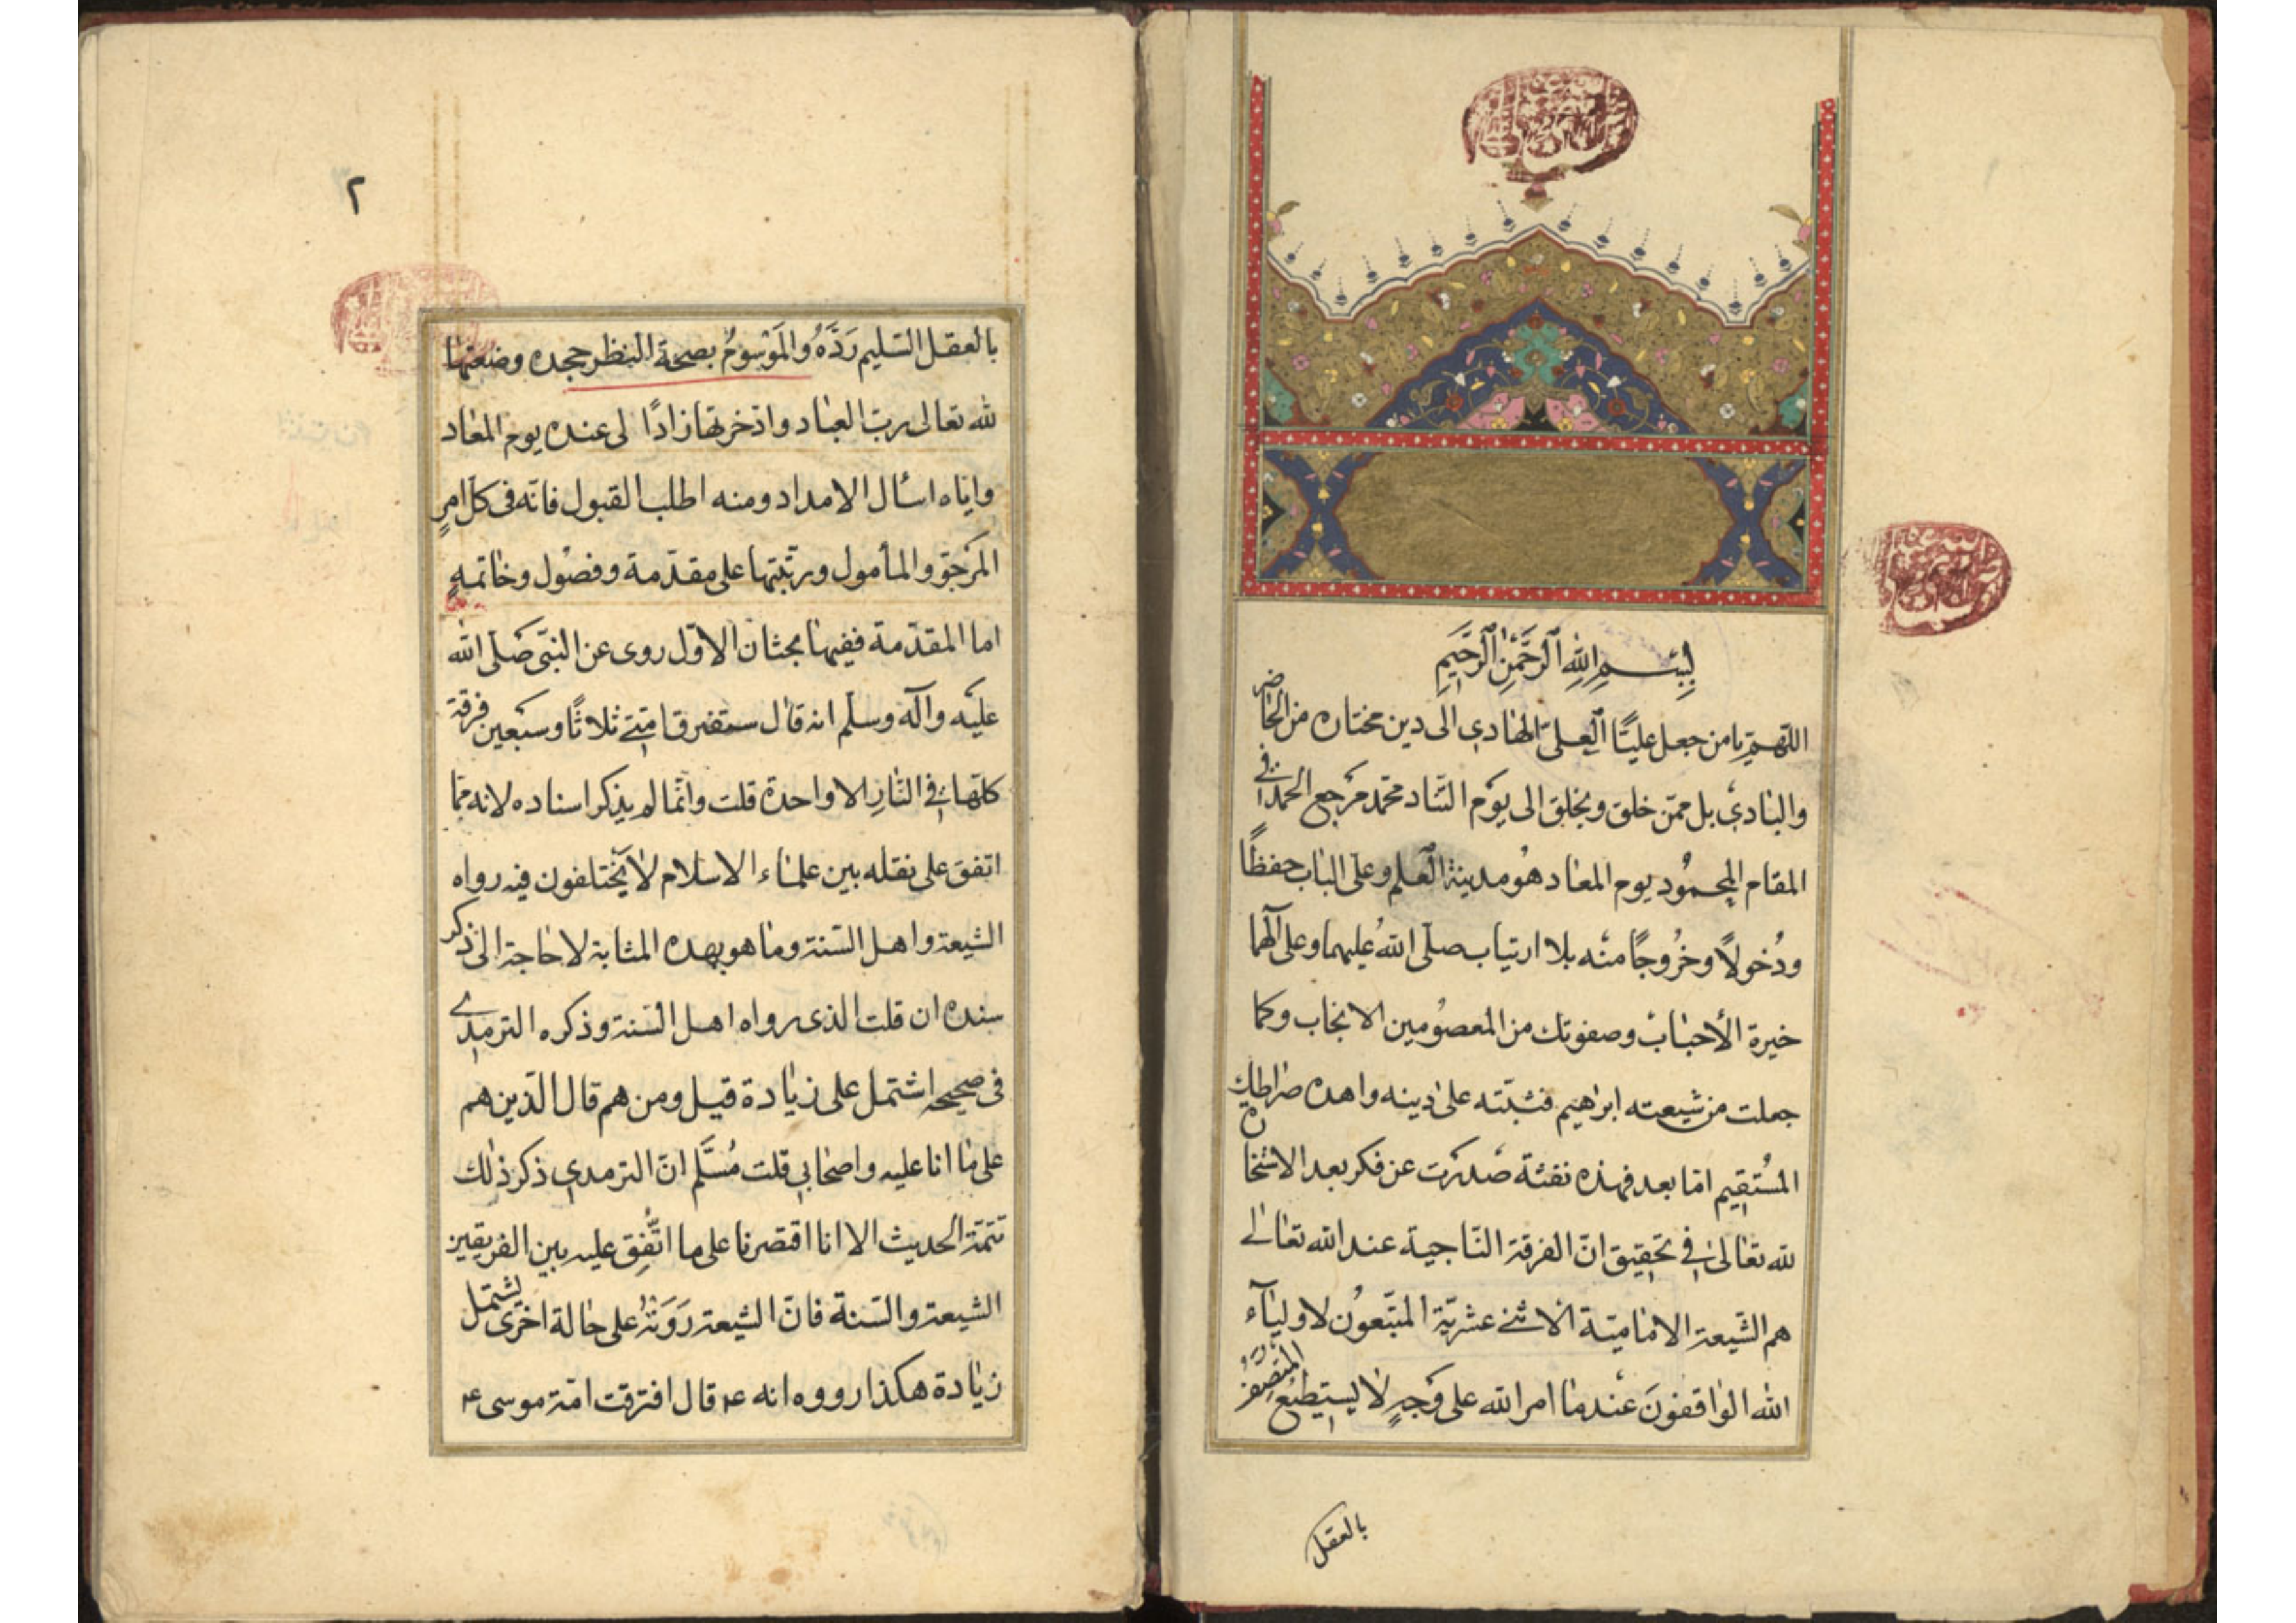 بِسْمِ اللهِ الرَّحْمٰنِ الرَّحِيمِ
اللهم يا من جعل عليًّا العليّ الهادي الى دين مختاره من الحاضر
والبادي بل ممّن خلق ويخلق الى يوم التناد محمد مرجع الحمد في
المقام المحمُود يوم المعاد هُو مدينة العلم وعلى الباب حفظًا
ودُخولًا وخرُوجًا منه بلا ارتياب صلّى اللهُ عليهما وعلى آلهما
خيرة الأحباب وصفوتك من المعصُومين الانجاب وكما
جعلت من شيعته ابراهيم فثبّته على دينه واهده صراطك
المُستقيم امّا بعد فهذه نفثة صدرت عن فكر بعد الاستخاره
لله تعالى في تحقيق انّ الفرقة النّاجية عند الله تعالى
هم الشّيعة الاماميّة الاثنى عشريّة المتّبعُون لاولياء
الله الواقفونَ عند ما امر الله على وَجهٍ لا يستطيع المتصف
بالعقل
٢
بالعقل السّليم رَدَّهُ والمَوْسُومُ بصحة النظر جحده وضعتها
لله تعالى ربّ العباد وادّخرتها زادًا لى عنده يوم المعاد
واياه اسأل الامداد ومنه اطلب القبول فانّه فى كلّ امرٍ
المرجوّ والمأمول ورتّبتها على مقدّمة وفصُول وخاتمةٍ
اما المقدّمة ففيها بحثان الاوّل روى عن النبّى صَلّى الله
عليه وآله وسلّم انه قال ستفترق امّتى ثلاثًا وسبعين فرقة
كلّها فى النّارِ الا واحدة قلت وانّما لم يذكر اسناده لانه ممّا
اتفق على نقله بين علماء الاسلام لا يختلفون فيه رواه
الشيعة واهل السّنة وما هو بهذه المثابة لا حاجة الى ذكر
سنده ان قلت الذى رواه اهل السّنة وذكره الترمدى
فى صحيحه اشتمل على زيادة قيل ومن هم قال الّذين هم
على ما انا عليه واصحابى قلت مُسَلَّم انّ الترمدى ذكر ذلك
تتمّة الحديث الا انا اقتصرنا على ما اتُّفِق عليه بين الفريقين
الشيعة والسّنة فانّ الشيعة رَوَتْهُ على حالة اخرى تشتمل
زيادة هكذا رووه انه ع قال افترقت امّة موسى ع